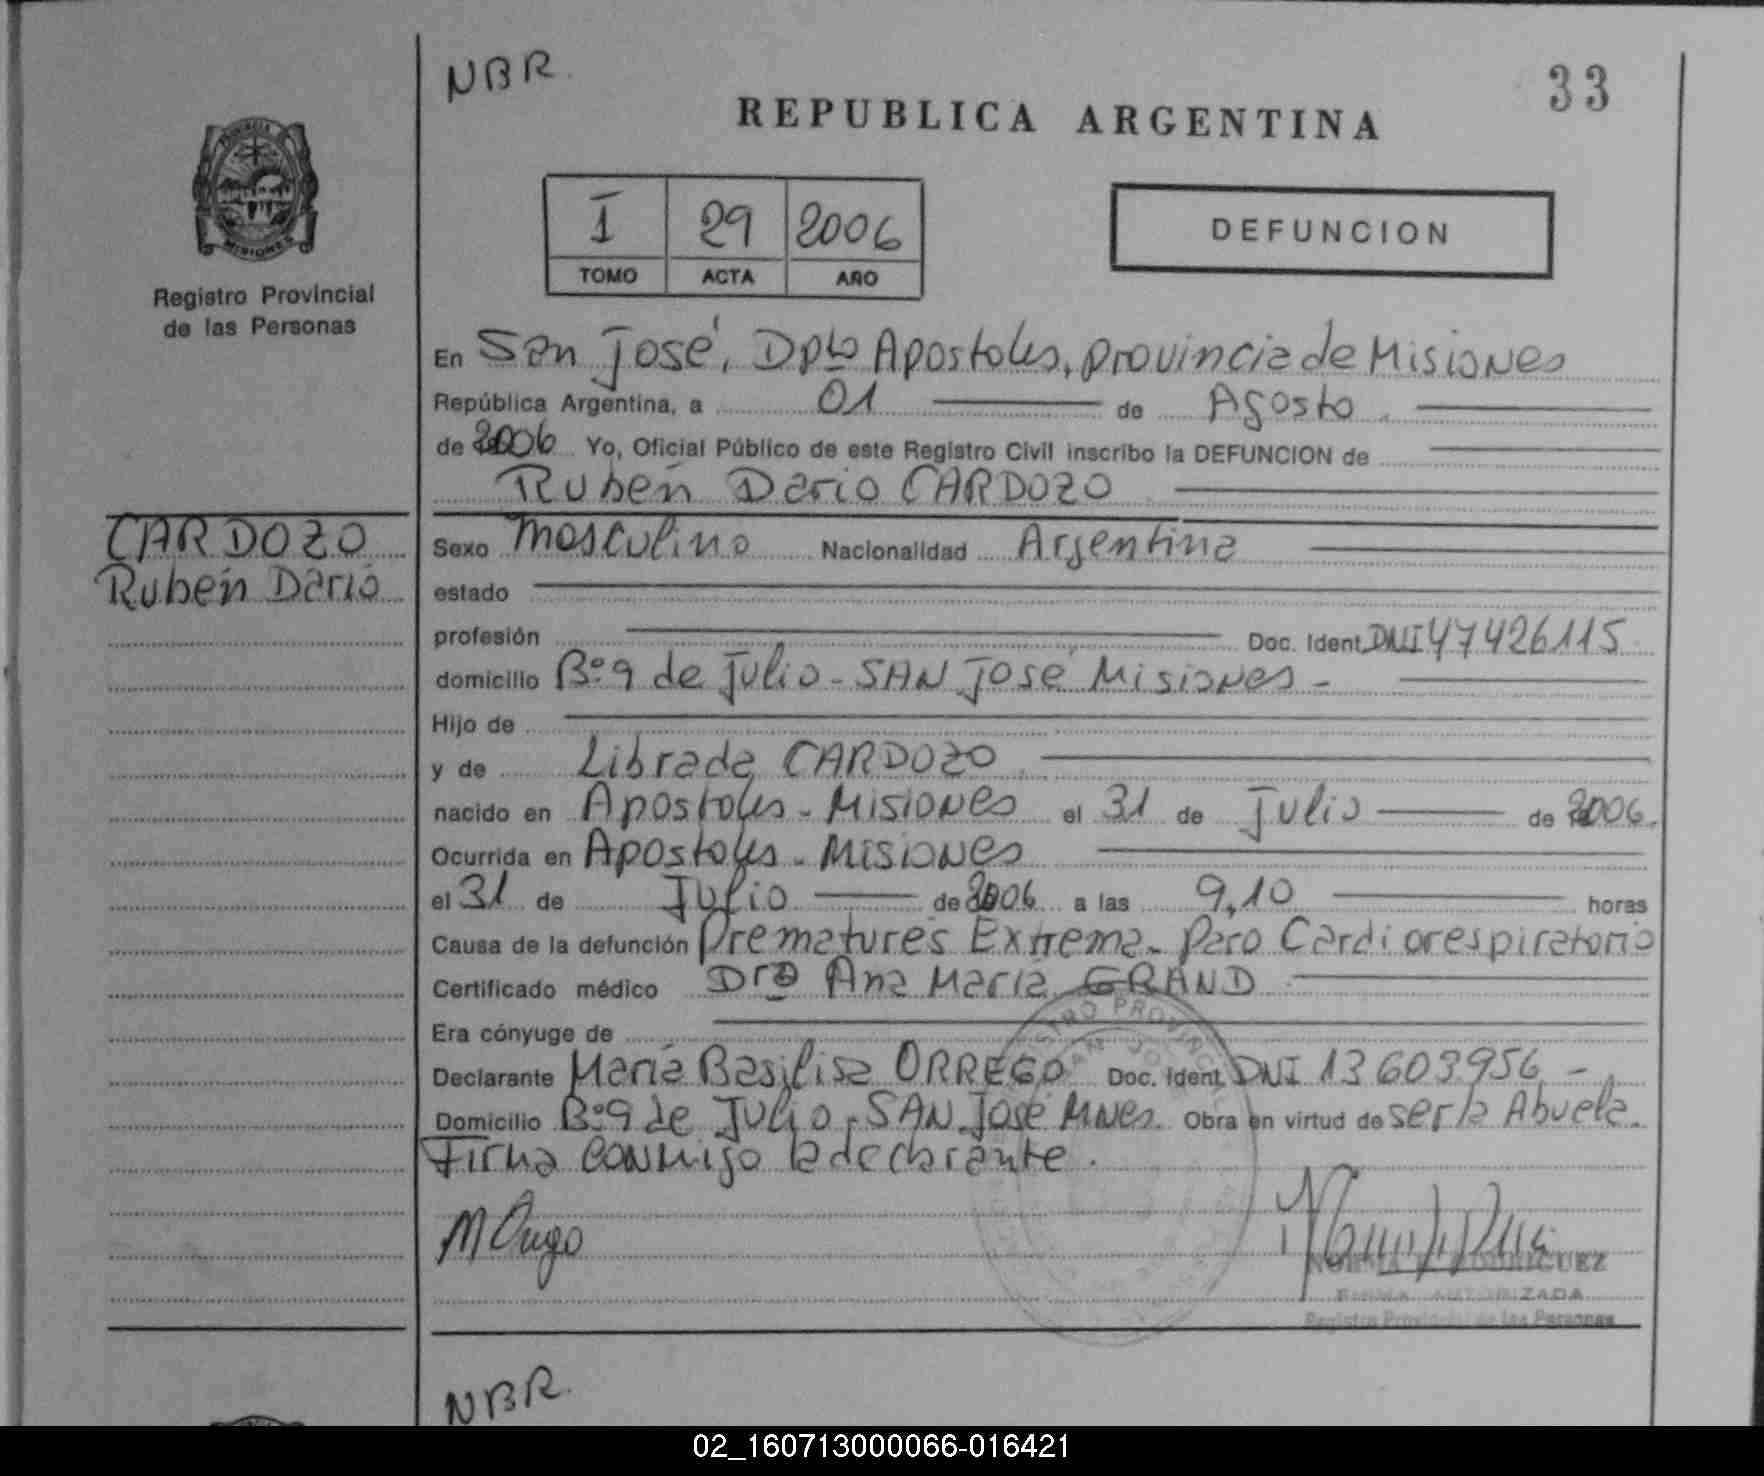 NBR.
33
REPUBLICA ARGENTINA
PROVINCIA
MISIONES
Registro Provincial
de las Personas
I 29 2006
TOMO ACTA AÑO
DEFUNCION
En San José, Dpto Apostoles, provincia de Misiones
República Argentina, a 01 de Agosto.
de 2006 Yo, Oficial Público de este Registro Civil inscribo la DEFUNCION de
Rubén Dario CARDOZO
CARDOZO
Rubén Darió
Sexo Masculino Nacionalidad Argentina
estado
profesión Doc. Ident. DNI 47426115
domicilio Bº 9 de Julio - SAN José Misiones -
Hijo de
y de Librada CARDOZO.
nacido en Apostoles - Misiones el 31 de Julio de 2006.
Ocurrida en Apostoles - Misiones
el 31 de Julio de 2006 a las 9,10 horas
Causa de la defunción Prematurés Extrema - Paro Cardiorespiratorio
Certificado médico Dra Ana María GRAND
Era cónyuge de
Declarante María Basilisa ORREGO Doc. Ident. DNI 13603956 -
Domicilio Bº 9 de Julio - SAN José Mnes. Obra en virtud de ser la Abuela.
Firma conmigo la declarante.
RODRIGUEZ
FIRMA AUTORIZADA
Registro Provincial de las Personas
NBR.
02_160713000066-016421